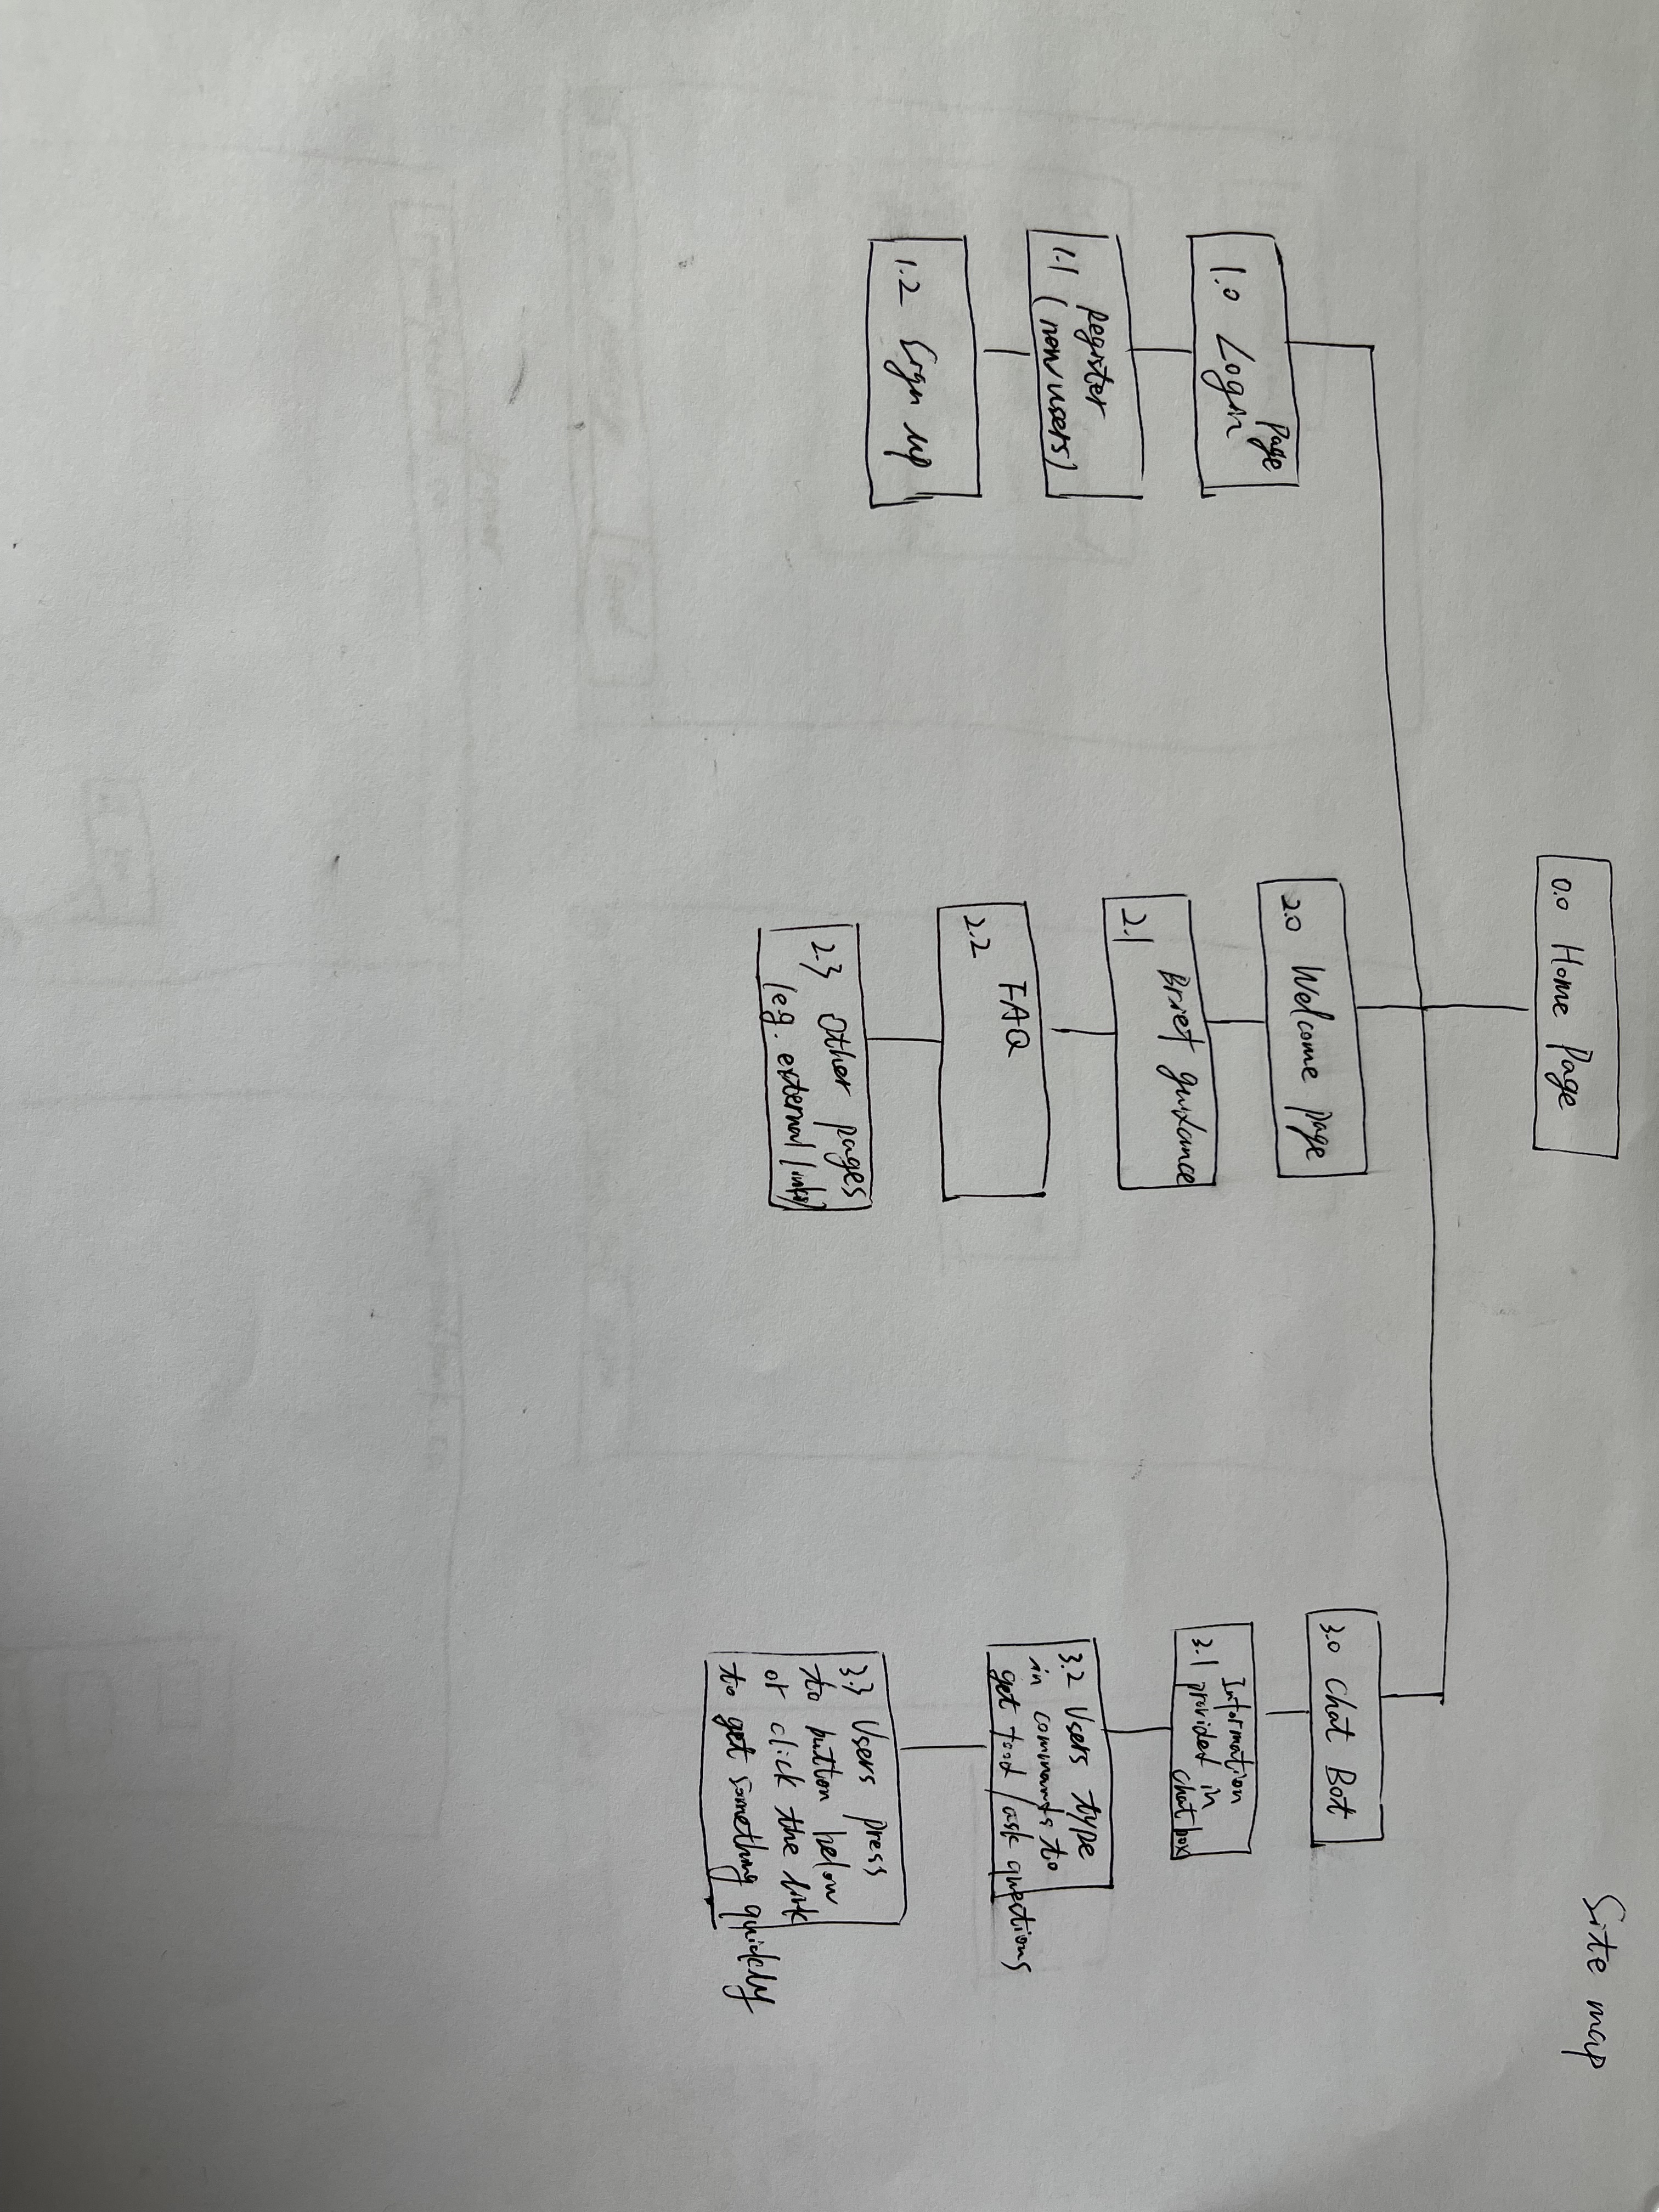 Site map
0.0 Home Page
Page
1.0 Login
Register
1.1 (new users)
1.2 Sign up
2.0 Welcome page
Brief guidance
2.1
FAQ
2.2
2.3 Other pages
(e.g. external links)
3.0 Chat Bot
Information
3.1 provided in
chat box
3.2 Users type
in commands to
get food / ask questions
3.3 Users press
to button below
or click the link
to get something quickly